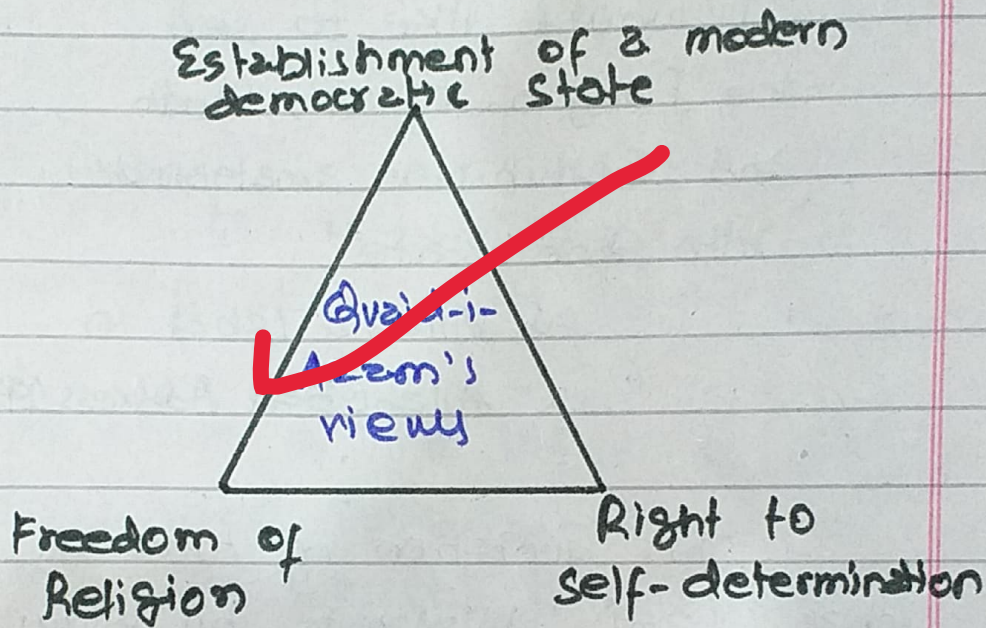 Establishment of a modern
democratic state
Quaid-i-
Azam's
views
Freedom of
Religion
Right to
self-determination